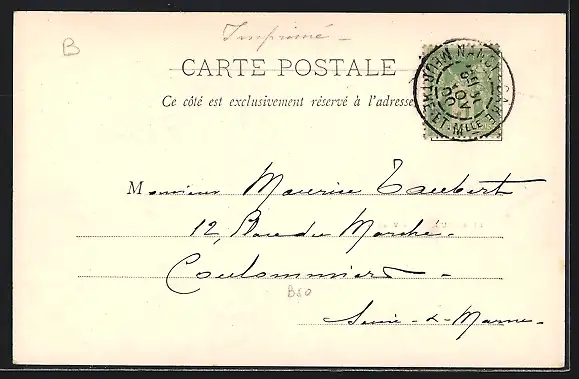 B
Imprimé
CARTE POSTALE
Ce côté est exclusivement réservé à l'adresse
NANCY MEURTHE-ET-MLLE
Monsieur Maurice Taubert
12, Rue du Marché
Coulommiers
B80
Seine-&-Marne